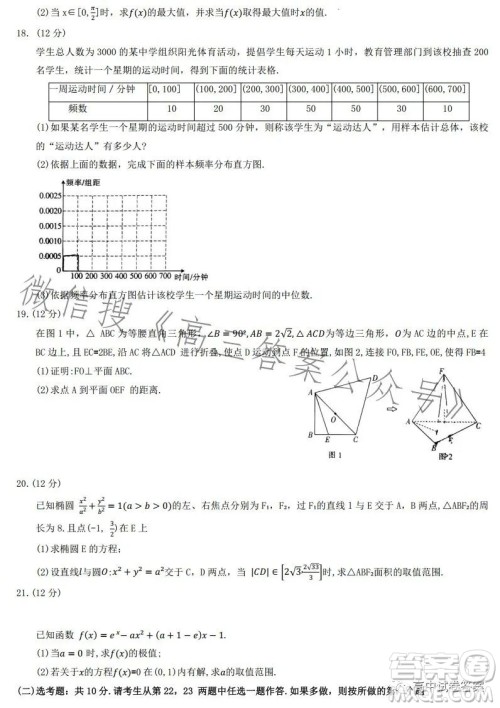 (2)当 x∈[0,π/2]时，求f(x)的最大值，并求当f(x)取得最大值时x的值.
18. (12 分)
学生总人数为 3000 的某中学组织阳光体育活动，提倡学生每天运动 1 小时，教育管理部门到该校抽查 200
名学生，统计一个星期的运动时间，得到下面的统计表格.
一周运动时间/分钟 [0,100] (100,200] (200,300] (300,400] (400,500] (500,600] (600,700]
频数 10 20 30 50 50 30 10
(1)如果某名学生一个星期的运动时间超过 500 分钟，则称该学生为“运动达人”.用样本估计总体，该校
的“运动达人”有多少人？
(2)依据上面的数据，完成下面的样本频率分布直方图.
频率/组距
0.0025
0.0020
0.0015
0.0010
0.0005
100 200 300 400 500 600 700 时间/分钟
(3)依据频率分布直方图估计该校学生一个星期运动时间的中位数.
19. (12 分)
在图 1 中，△ABC 为等腰直角三角形，∠B=90°,AB=2√2,△ACD为等边三角形，O 为 AC 边的中点，E 在 BC
边上，且 EC=2BE，沿 AC 将△ACD 进行折叠，使点 D 运动到点 F 的位置，如图 2，连接 FO,FB,FE,OE，使得 FB=4
(1)证明:FO⊥平面 ABC.
(2)求点 A 到平面 OEF 的距离.
A
O
B E C
图 1
F
A
C
图 2
20. (12 分)
已知椭圆 x²/a²+y²/b²=1(a>b>0)的左、右焦点分别为 F₁,F₂，过 F₁的直线 l 与 E 交于 A，B 两点，△ABF₂的周
长为 8.且点(-1, 3/2)
(1)求椭圆 E 的方程；
(2)设直线l与圆O:x²+y²=a²交于 C，D 两点，当 |CD|∈[2√3,2√33/3]时，求△ABF₂面积的取值范围.
21. (12 分)
已知函数 f(x)=eˣ-ax²+(a+1-e)x-1.
(1)当a=0 时，求f(x)的极值；
(2)若关于x的方程f(x)=0 在(0,1)内有解，求a的取值范围.
(二)选考题：共 10 分.请考生从第 22，23 两题中任选一题作答.如果多做，则按所做的第
微信搜《高三答案公众号》
高中试卷答案